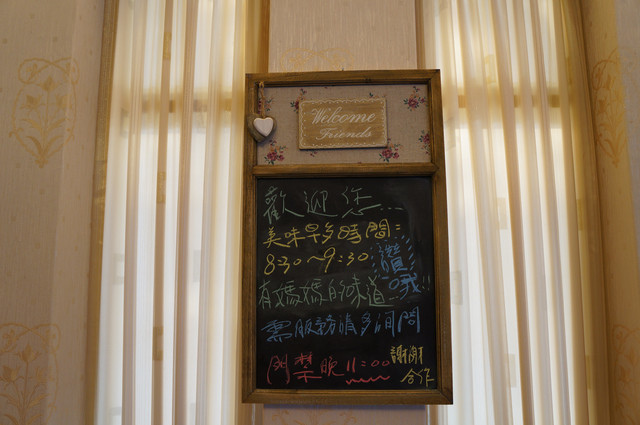 Welcome
Friends
歡迎您...
美味早多時間:
8:30~9:30 讚
有媽媽的味道哦!!
需服務請多詢問
門禁晚11:00 謝謝
合作